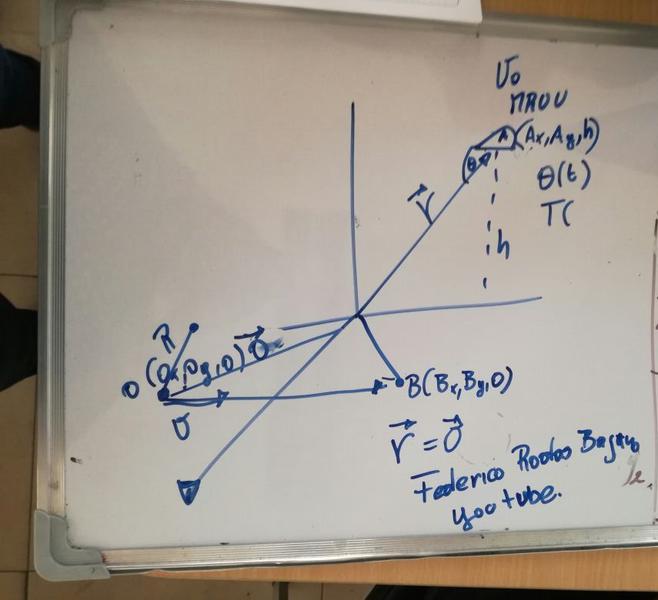 U₀
MRUV
A (Ax, Ay, h)
θ
θ(t)
r⃗
T(
h
R
O (Ox, Oy, 0) O⃗
B (Bx, By, 0)
U
r⃗ = O⃗
Federico Rodas
youtube.